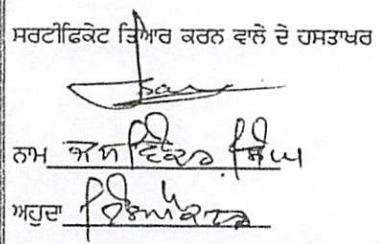 ਸਰਟੀਫਿਕੇਟ ਤਿਆਰ ਕਰਨ ਵਾਲੇ ਦੇ ਹਸਤਾਖਰ
ਨਾਮ ਜਸਵਿੰਦਰ ਸਿੰਘ
ਅਹੁਦਾ